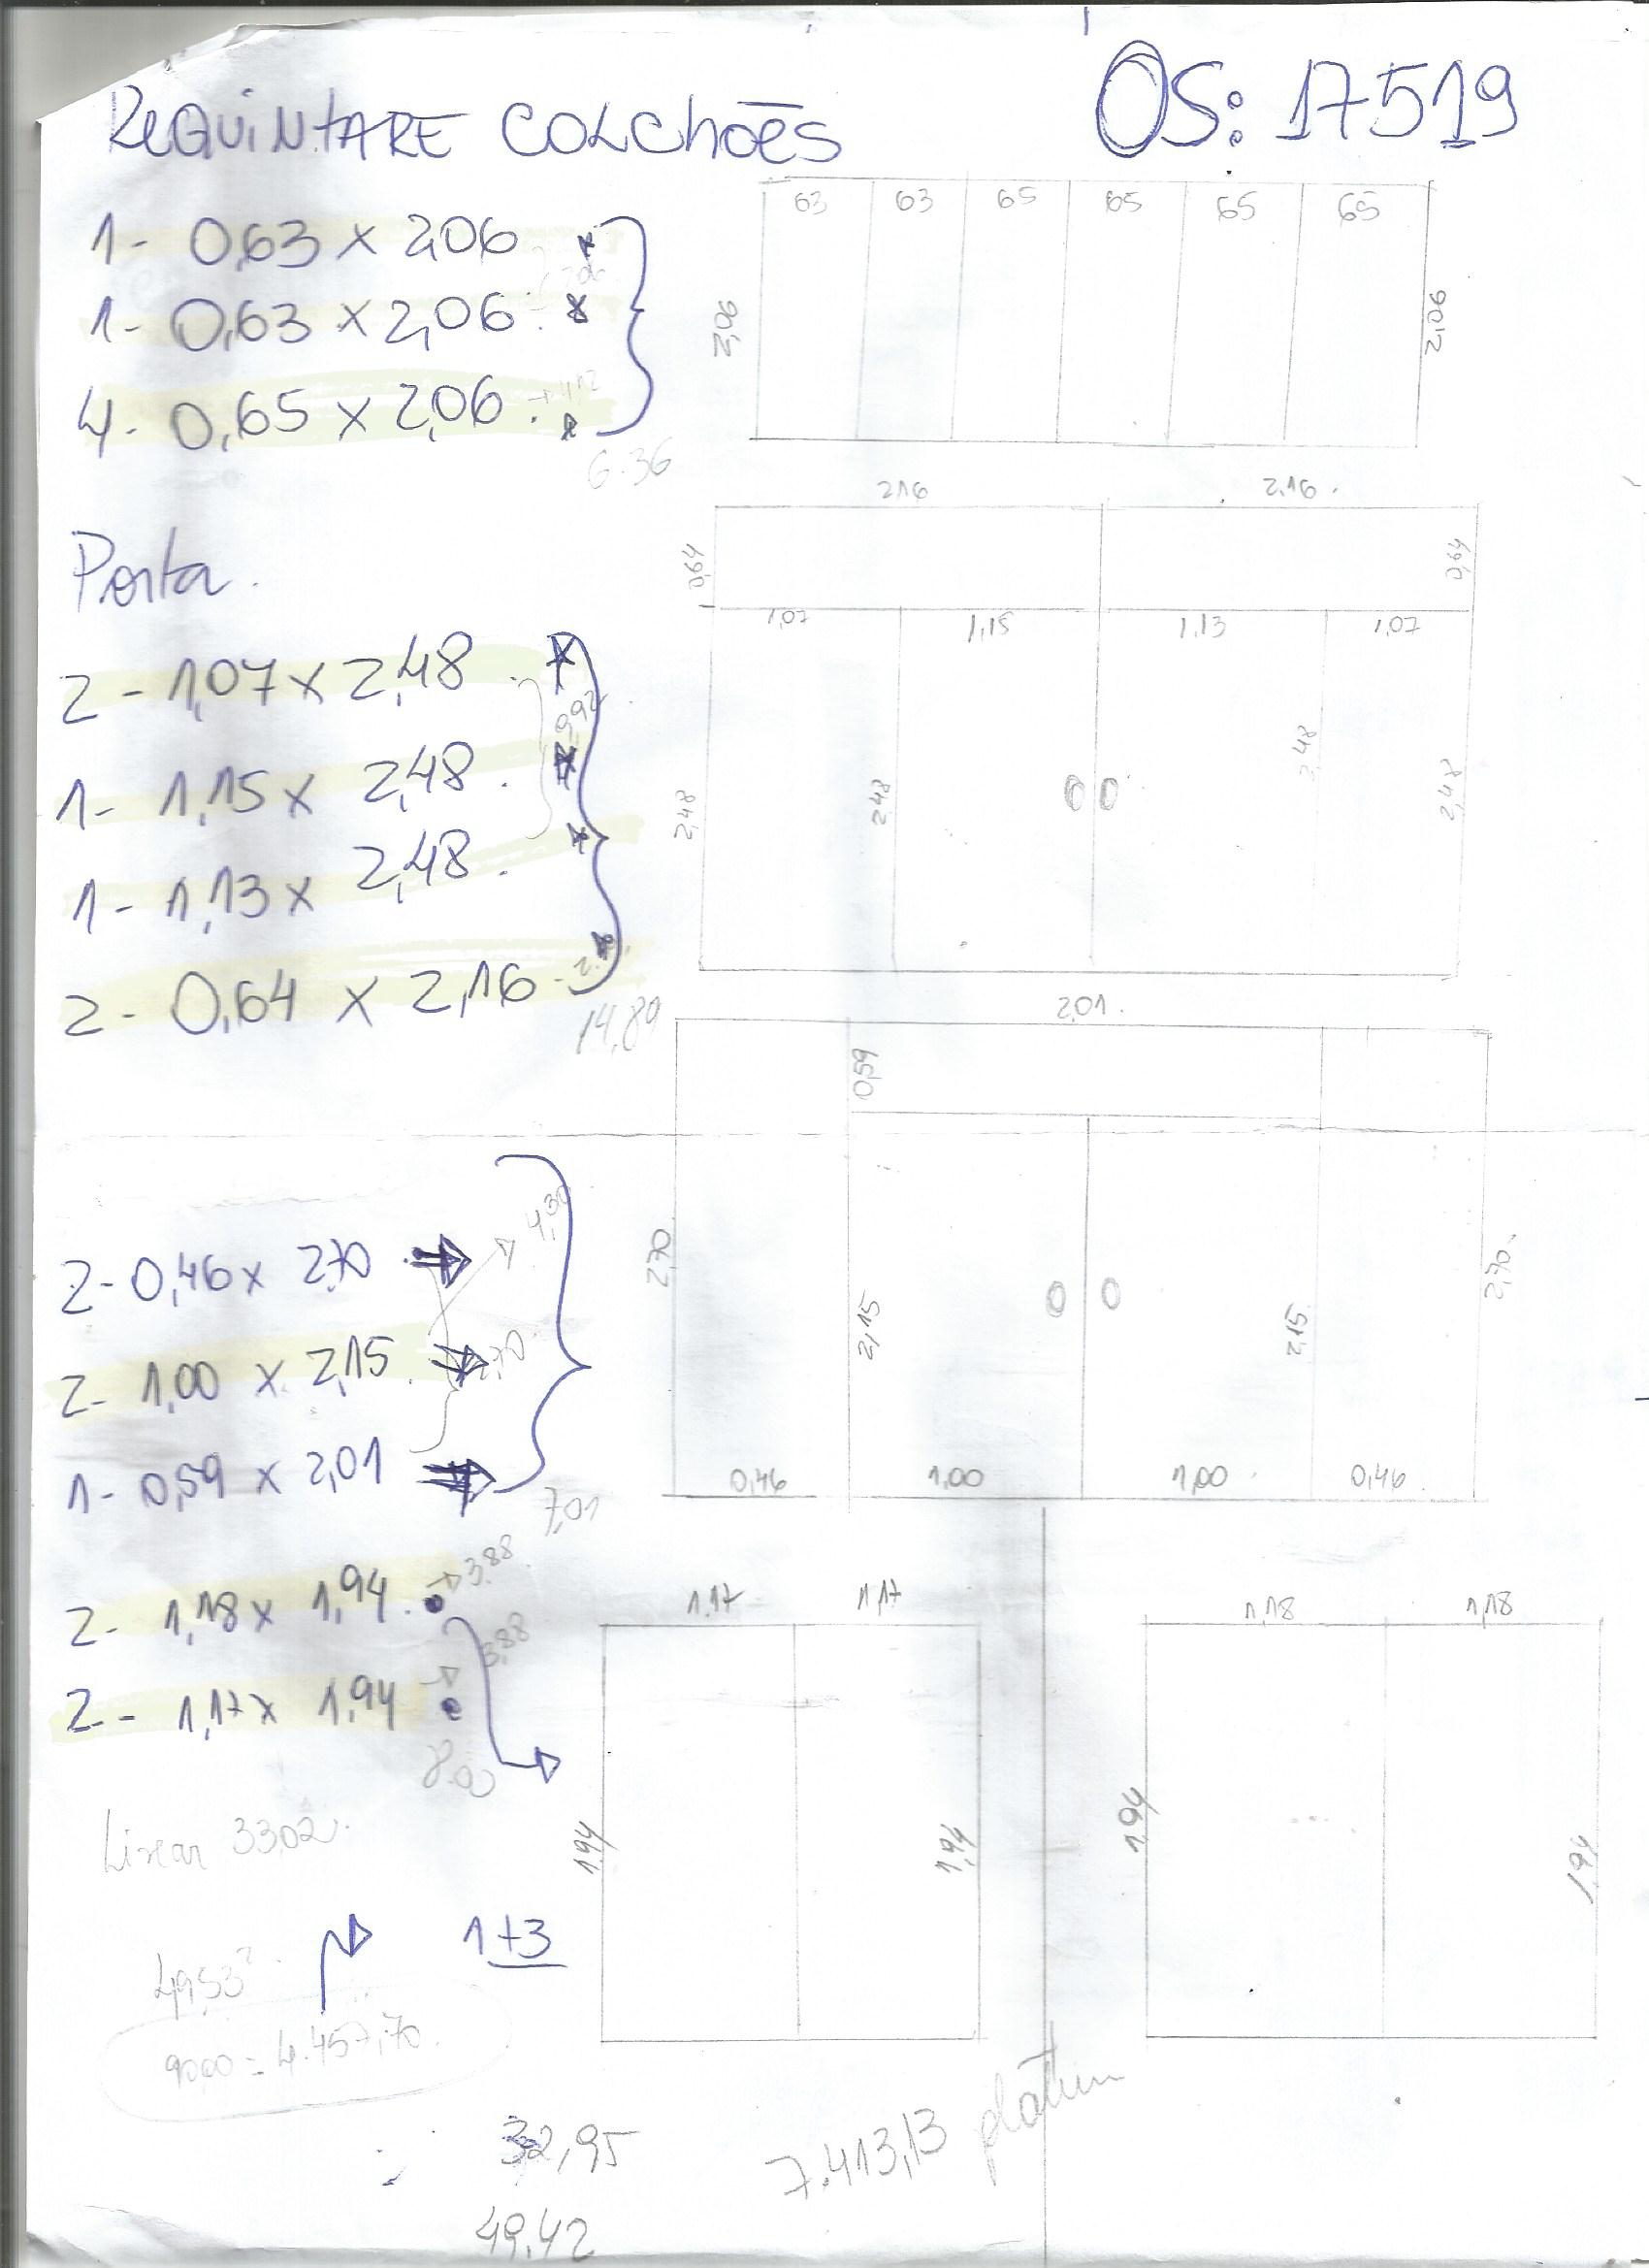 REQUINTARE COLCHÕES
OS: 17519
1- 0,63 x 2,06
1- 0,63 x 2,06
4- 0,65 x 2,06
6.36
63 63 65 65 65 65
2,06
2,06
Porta.
2- 1,07 x 2,48
1- 1,15 x 2,48
1- 1,13 x 2,48
2- 0,64 x 2,16
9,92
14,89
2,16 2,16
0,64 0,64
1,07 1,15 1,13 1,07
2,48 2,48 2,48 2,48
2- 0,46 x 2,70
2- 1,00 x 2,15
1- 0,59 x 2,01
4,30
7,01
2,01
0,59
2,70 2,15 2,15 2,70
0,46 1,00 1,00 0,46
2- 1,18 x 1,94 3.88
2- 1,17 x 1,94 3,88
1,17 1,17
1,94 1,94
1,18 1,18
1,94 1,94
Linear 33,02
1+3
49,53²
90,00 = 4.457,70
32,95
49,42
7.413,13